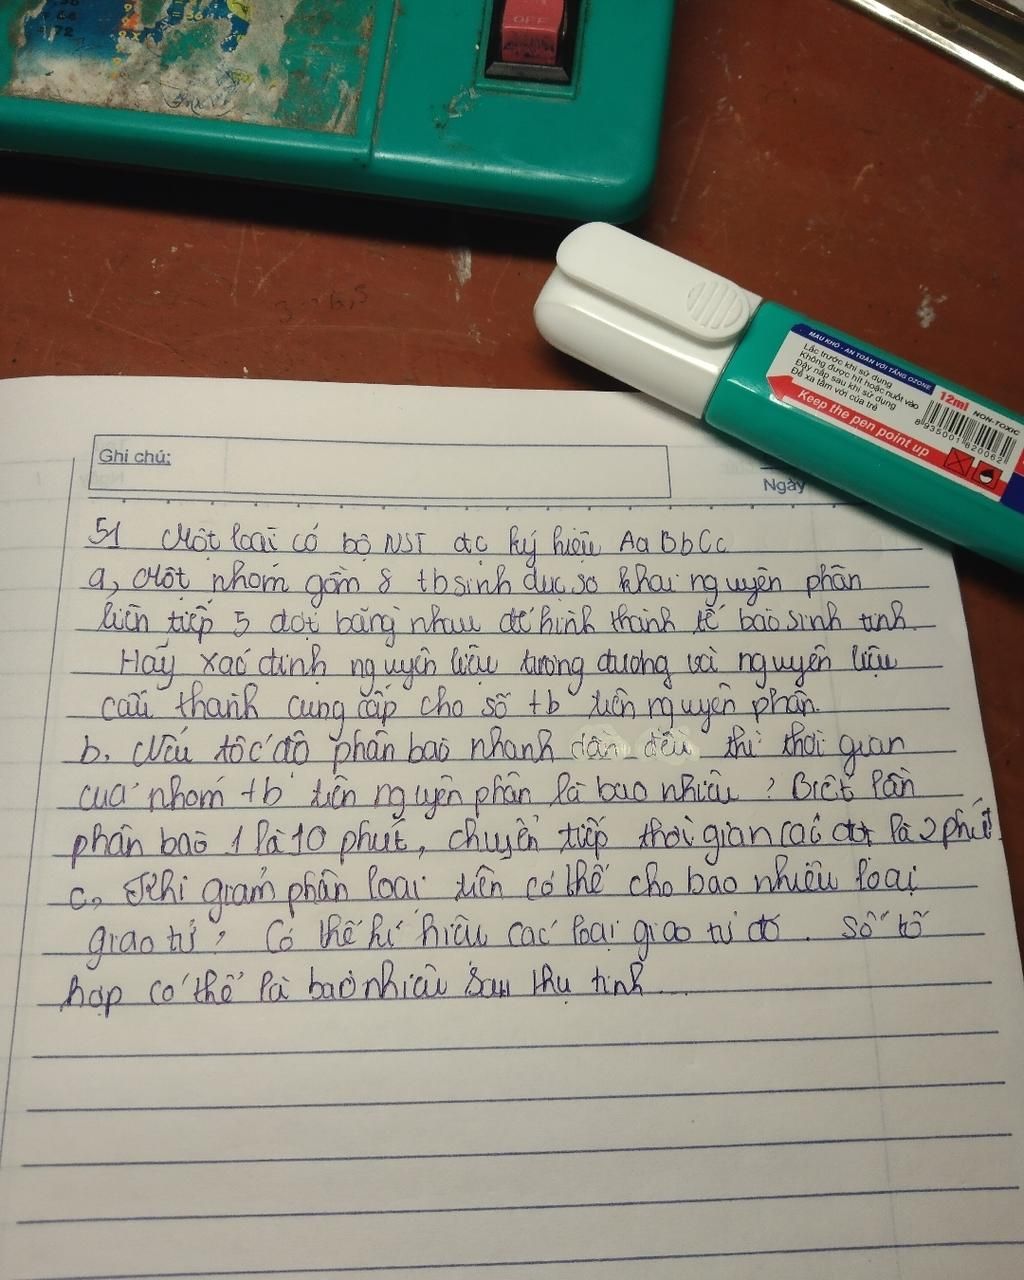 OFF
72
MAU KHÔ - AN TOÀN VỚI TẦNG OZONE
Lắc trước khi sử dụng
Không được hít hoặc nuốt vào
Đậy nắp sau khi sử dụng
Để xa tầm với của trẻ
Keep the pen point up
12ml
NON-TOXIC
8 935001 820062
Ghi chú:
Ngày
51 Một loài có bộ NST đc ký hiệu AaBbCc
a, Một nhóm gồm 8 tb sinh dục sơ khai nguyên phân
liên tiếp 5 đợt bằng nhau để hình thành tế bào sinh tinh.
Hãy xác định nguyên liệu tương đương và nguyên liệu
cấu thành cung cấp cho số tb trên nguyên phân.
b. Nếu tốc độ phân bào nhanh dần đều thì thời gian
của nhóm tb trên nguyên phân là bao nhiêu? Biết lần
phân bào 1 là 10 phút, chuyển tiếp thời gian các đợt là 2 phút.
c, Khi giảm phân loài trên có thể cho bao nhiêu loại
giao tử? Có thể kí hiệu các loại giao tử đó. Số tổ
hợp có thể là bao nhiêu sau thụ tinh